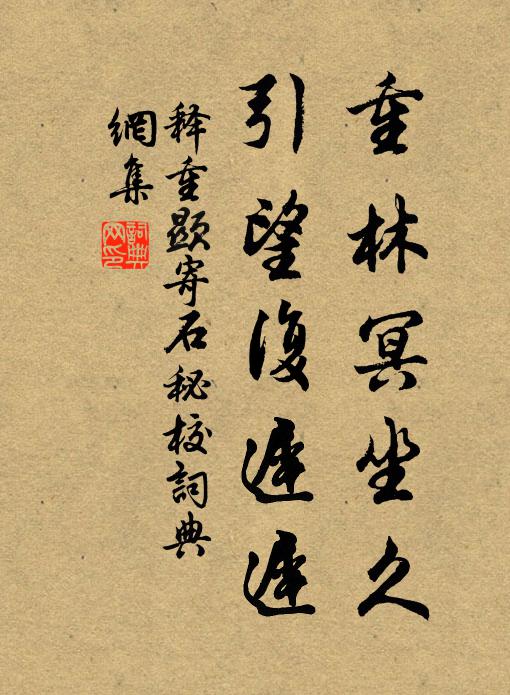 重林冥坐久
引望復遲遲
释重顯寄石秘校詞典
網集
詞典
网印